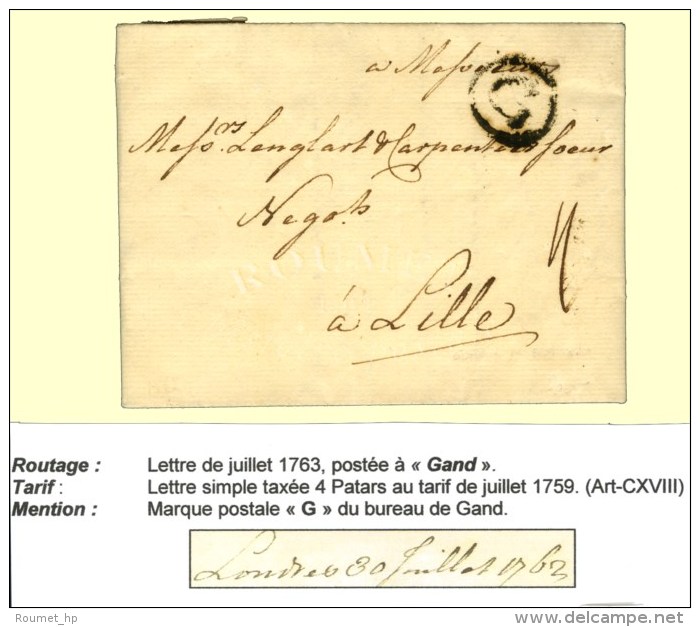 a Messieurs
G
Mess.rs Lenglart & Carpentier soeur
Negots
à Lille
Routage : Lettre de juillet 1763, postée à « Gand ».
Tarif : Lettre simple taxée 4 Patars au tarif de juillet 1759. (Art-CXVIII)
Mention : Marque postale « G » du bureau de Gand.
Londres 30 Juillet 1763
Roumet_hp
delcampe.net